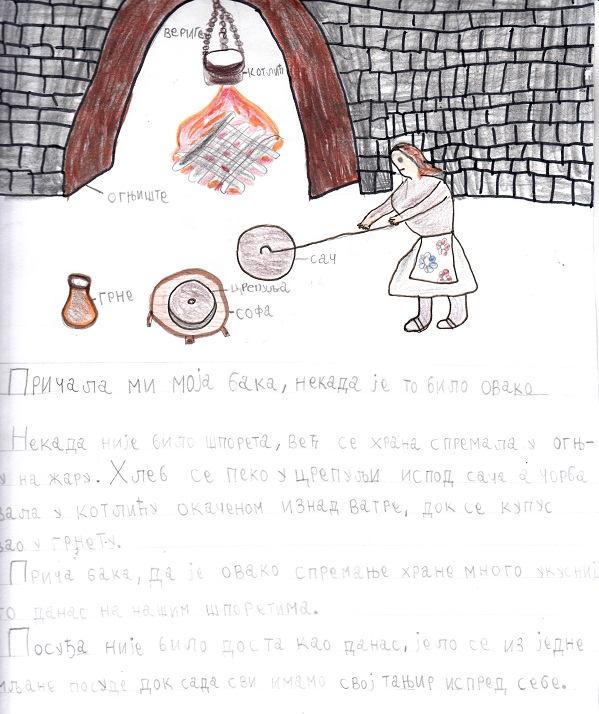 ВЕРИГЕ
КОТЛИЋ
ОГЊИШТЕ
САЧ
ЦРЕПУЉА
ГРНЕ
СОФА
Причала ми моја бака, некада је то било овако
Некада није било шпорета, већ се храна спремала у огњ-
у на жару. Хлеб се пеко у црепуљи испод сача а чорба
вала у котлићу окаченом изнад ватре, док се купус
вао у грнећу.
Прича бака, да је овако спремање хране много укусниј
то данас на нашим шпоретима.
Посуђа није било доста као данас, јело се из једне
мљане посуде док сада сви имамо свој тањир испред себе.